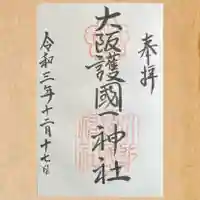 奉拝
大阪護國神社
令和三年十二月十七日